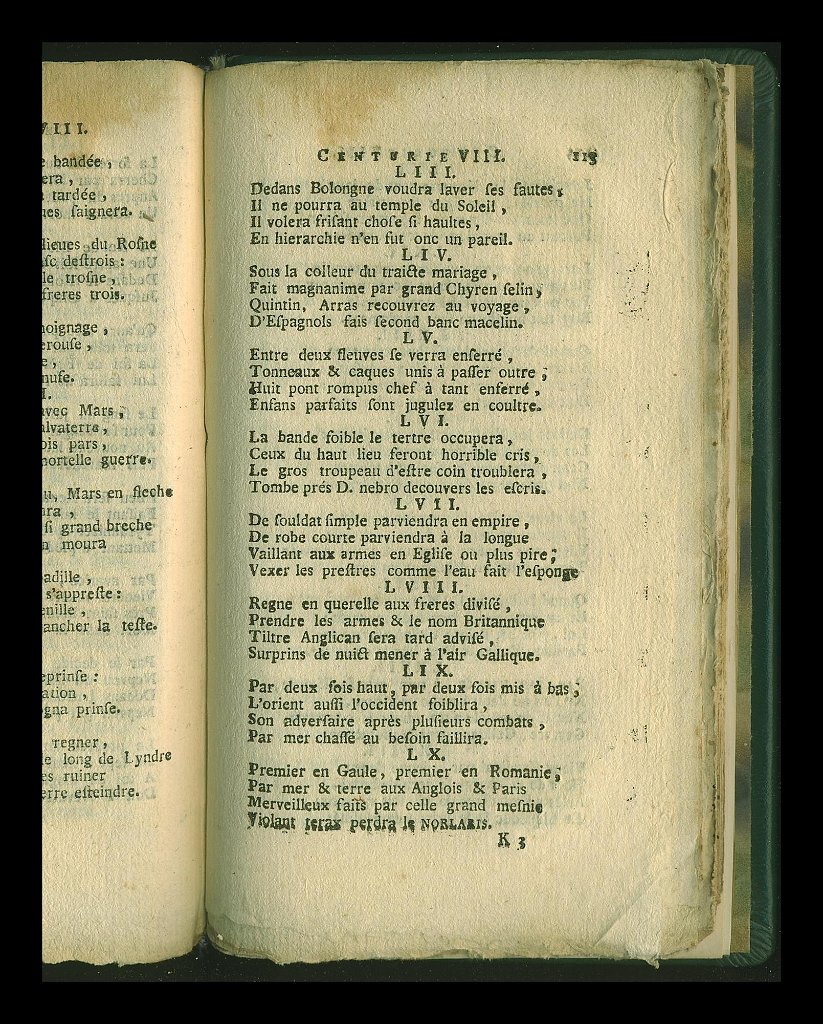 VIII.
bandée,
era,
tardée,
nes ſaignera.
lieues du Roſne
ſc deſtrois :
le troſne,
freres trois.
moignage,
erouſe,
e,
nuſe.
I.
avec Mars,
alvaterre,
ois pars,
mortelle guerre.
u, Mars en fleche
nra,
ſi grand breche
n moura
adille,
s'appreſte :
enille,
ancher la teſte.
eprinſe :
ation,
gna prinſe.
regner,
e long de Lyndre
es ruiner
erre eſteindre.
CENTURIE VIII. 113
LIII.
Dedans Bolongne voudra laver ſes fautes,
Il ne pourra au temple du Soleil,
Il volera friſant choſe ſi haultes,
En hierarchie n'en fut onc un pareil.
LIV.
Sous la colleur du traicte mariage,
Fait magnanime par grand Chyren ſelin,
Quintin, Arras recouvrez au voyage,
D'Eſpagnols fais ſecond banc macelin.
LV.
Entre deux fleuves ſe verra enſerré,
Tonneaux & caques unis à paſſer outre ;
Huit pont rompus chef à tant enferré,
Enfans parfaits ſont jugulez en coultre.
LVI.
La bande foible le tertre occupera,
Ceux du haut lieu feront horrible cris,
Le gros troupeau d'eſtre coin troublera,
Tombe prés D. nebro decouvers les eſcris.
LVII.
De ſouldat ſimple parviendra en empire,
De robe courte parviendra à la longue
Vaillant aux armes en Egliſe ou plus pire ;
Vexer les preſtres comme l'eau fait l'eſponge
LVIII.
Regne en querelle aux freres diviſé,
Prendre les armes & le nom Britannique
Tiltre Anglican ſera tard adviſé,
Surprins de nuict mener à l'air Gallique.
LIX.
Par deux fois haut, par deux fois mis à bas ;
L'orient auſſi l'occident foiblira,
Son adverſaire après pluſieurs combats,
Par mer chaſſé au beſoin faillira.
LX.
Premier en Gaule, premier en Romanie ;
Par mer & terre aux Anglois & Paris
Merveilleux faits par celle grand meſnie
Violant terax perdra le NORLARIS.
K 3